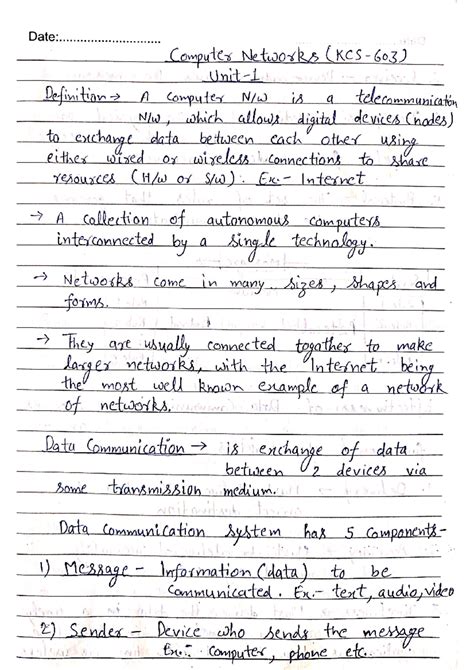 Date:..............................
Computer Networks (KCS-603)
Unit-1
Definition → A computer N/w is a telecommunication
N/w, which allows digital devices (nodes)
to exchange data between each other using
either wired or wireless connections to share
resources (H/w or S/w). Ex:- Internet
→ A collection of autonomous computers
interconnected by a single technology.
→ Networks come in many sizes, shapes and
forms.
→ They are usually connected together to make
larger networks, with the Internet being
the most well known example of a network
of networks.
Data Communication → is exchange of data
between 2 devices via
some transmission medium.
Data Communication system has 5 Components-
1) Message - Information (data) to be
communicated. Ex:- text, audio, video
2) Sender - Device who sends the message
Ex:- computer, phone etc.